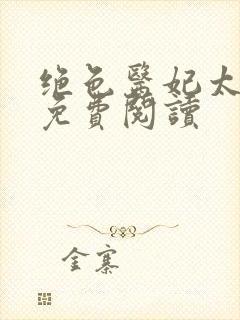 绝色醫妃太
免費閱讀
金寨